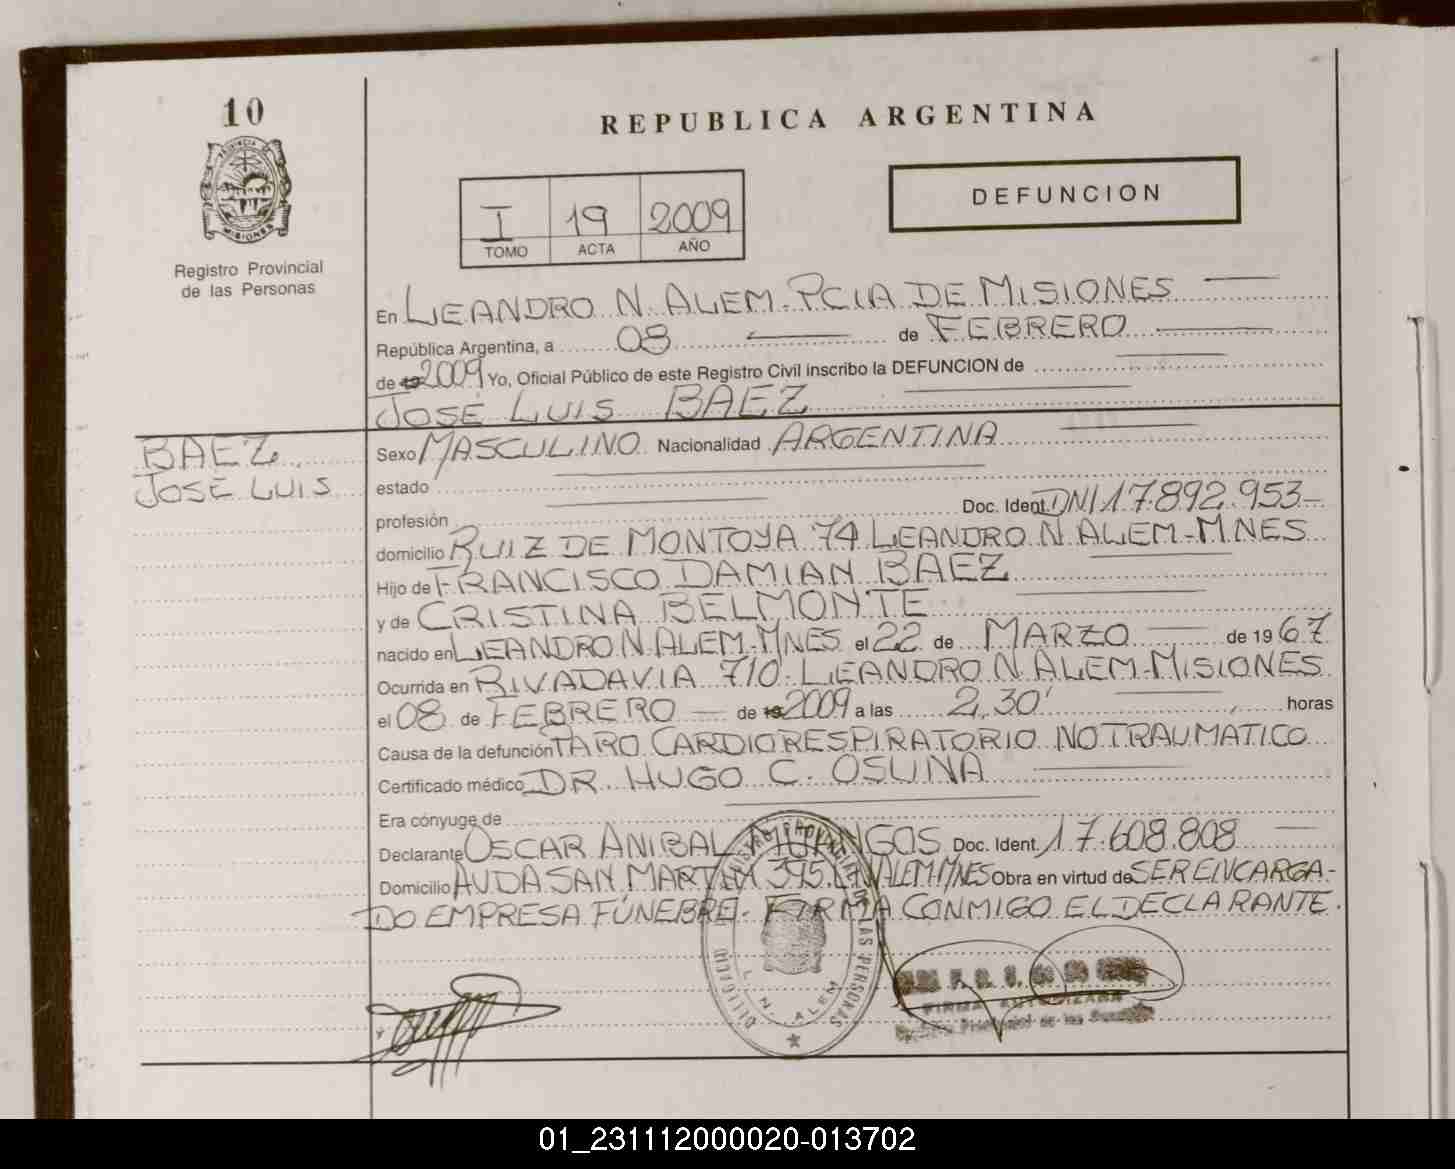 10
PROVINCIA DE
MISIONES
Registro Provincial
de las Personas
REPUBLICA ARGENTINA
I 19 2009
TOMO ACTA AÑO
DEFUNCION
En LEANDRO N. ALEM. PCIA DE MISIONES
República Argentina, a 08 de FEBRERO
de 2009 Yo, Oficial Público de este Registro Civil inscribo la DEFUNCION de
JOSÉ LUIS BAEZ
BAEZ
JOSÉ LUIS
Sexo MASCULINO Nacionalidad ARGENTINA
estado
profesión Doc. Ident. DNI 17.892.953
domicilio RUIZ DE MONTOYA 74 LEANDRO N ALEM-MNES
Hijo de FRANCISCO DAMIAN BAEZ
y de CRISTINA BELMONTE
nacido en LEANDRO N. ALEM-MNES el 22 de MARZO de 1967
Ocurrida en RIVADAVIA 710. LEANDRO N ALEM-MISIONES
el 08 de FEBRERO de 2009 a las 2,30' horas
Causa de la defunción PARO CARDIORESPIRATORIO NO TRAUMATICO
Certificado médico DR. HUGO C. OSUNA
Era cónyuge de
Declarante OSCAR ANIBAL Doc. Ident. 17.608.808
Domicilio AVDA SAN MARTIN 395. L.N. ALEM. MNES Obra en virtud de SER ENCARGA-
DO EMPRESA FÚNEBRE. FIRMA CONMIGO EL DECLARANTE.
PROVINCIAL DE LAS PERSONAS
L. N. ALEM
FIRMA AUTORIZADA
01_231112000020-013702